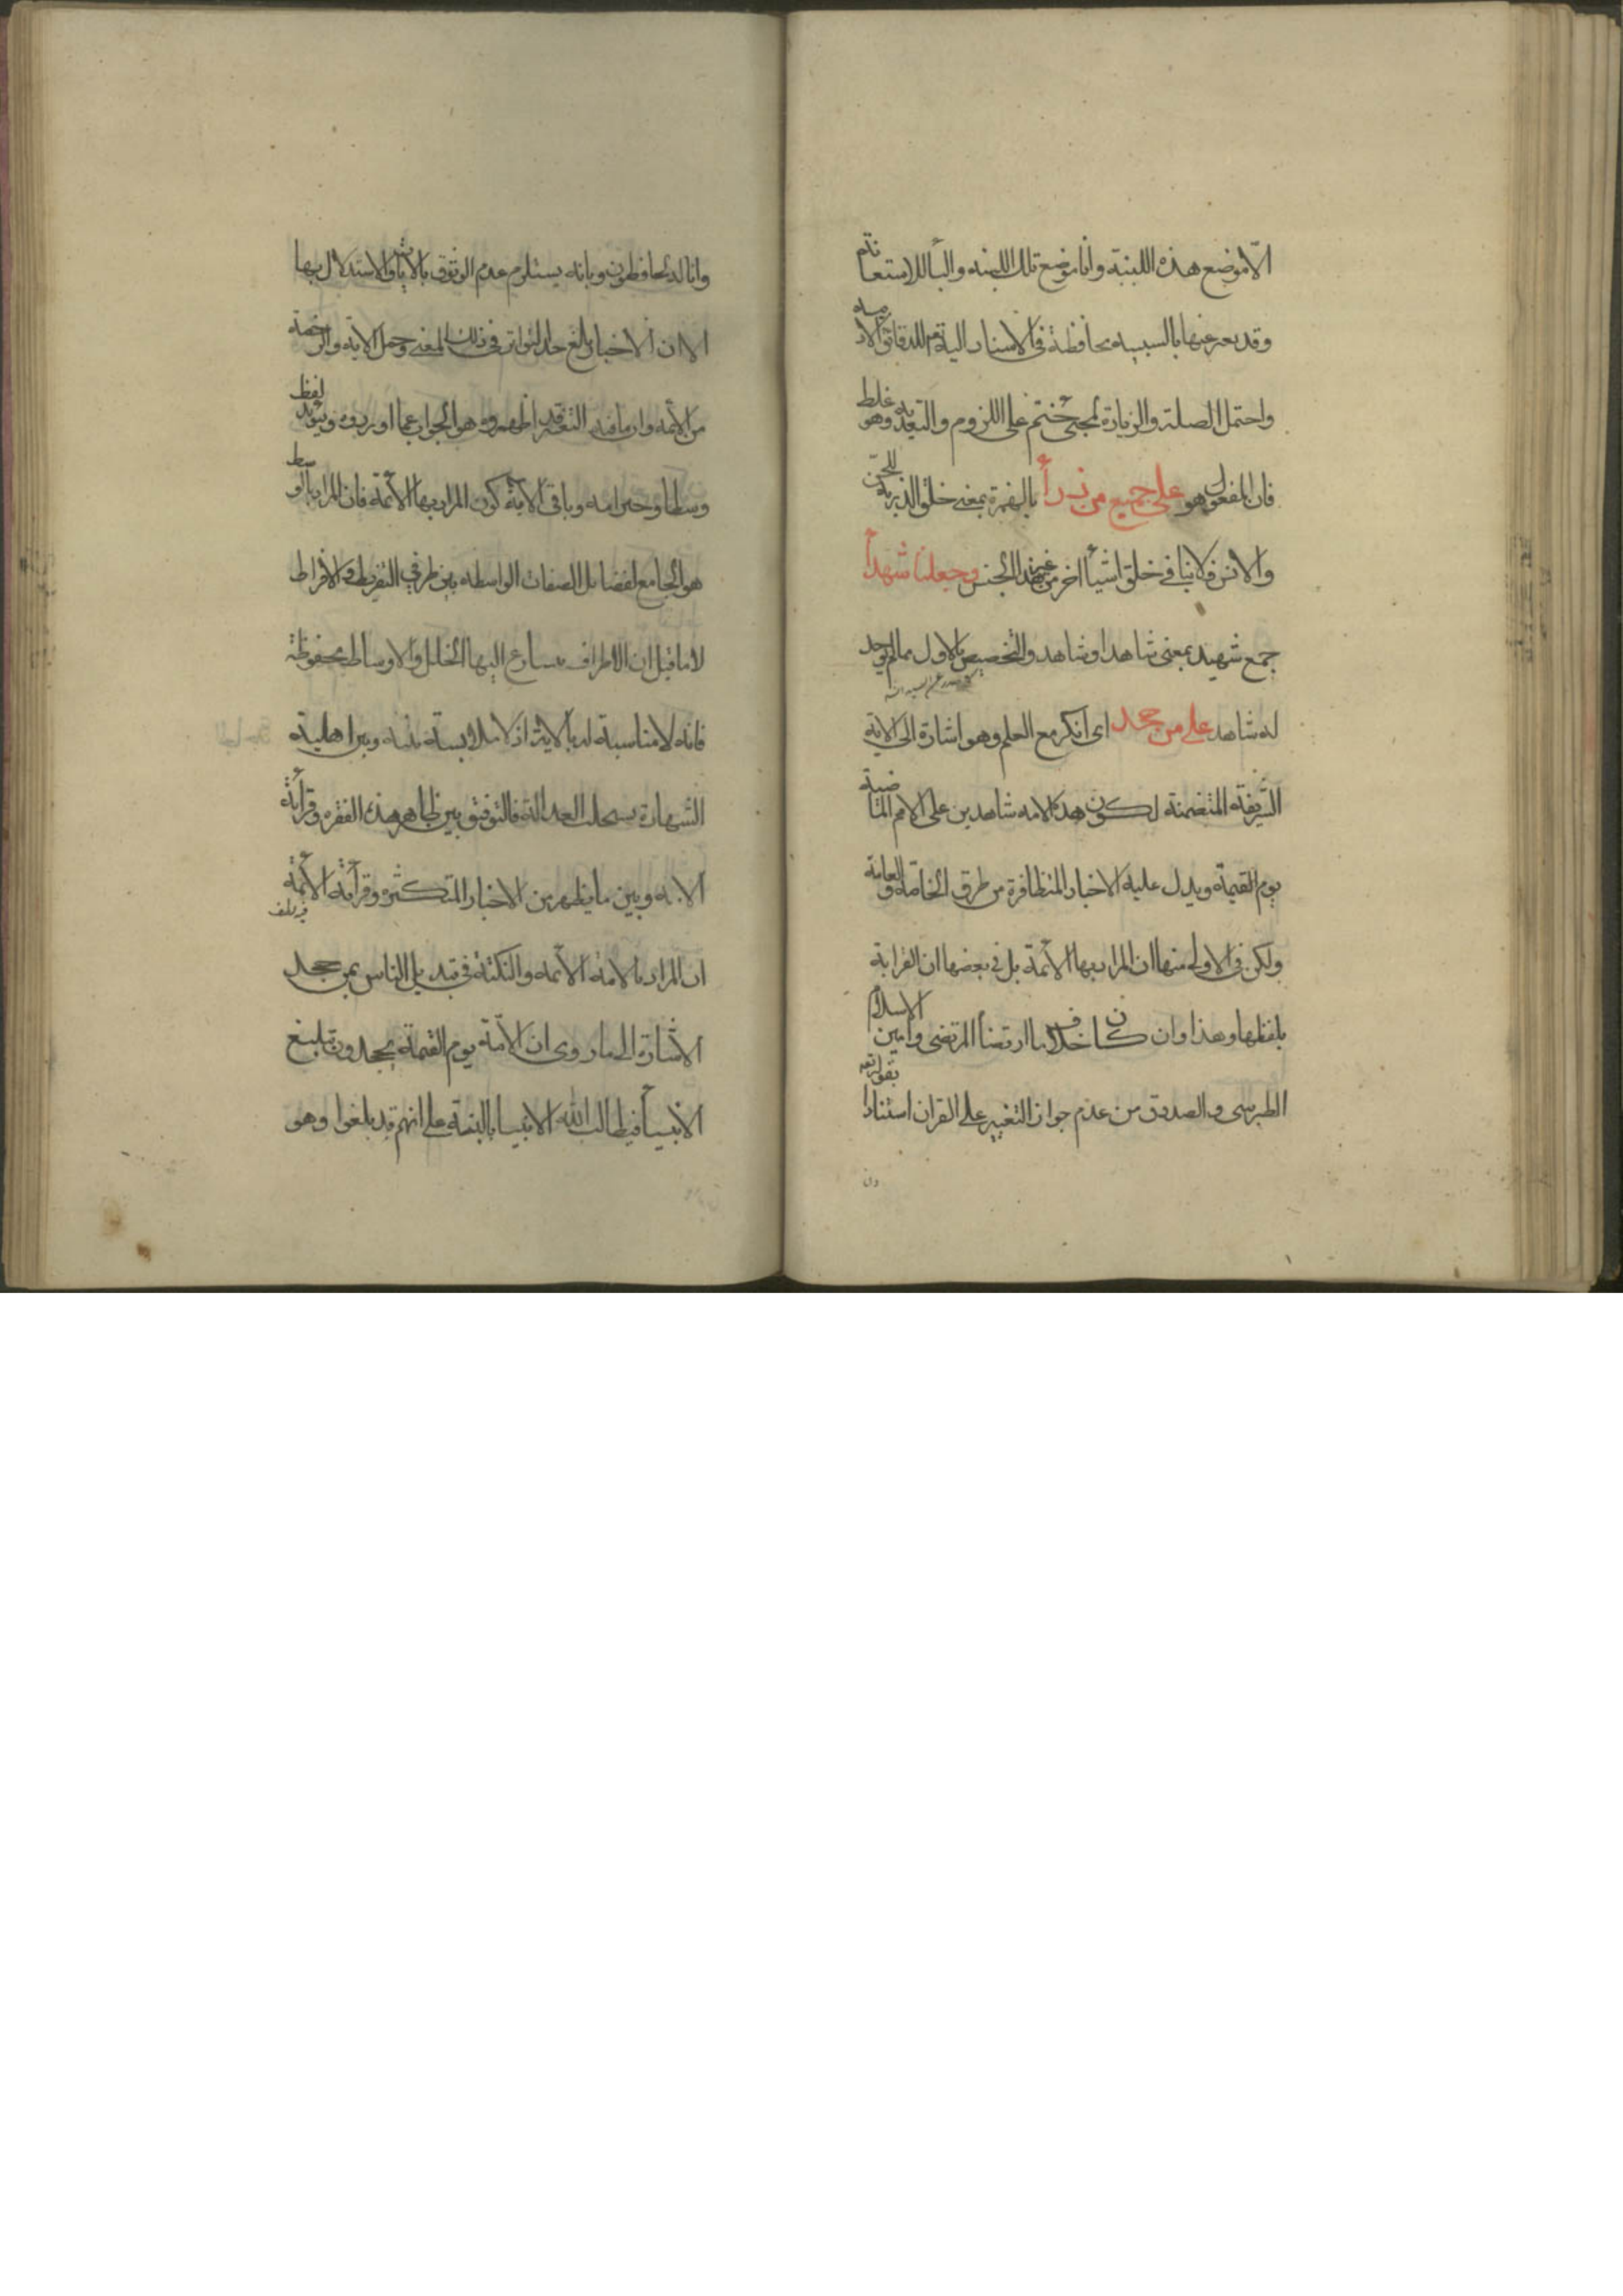 الّا موضع هذه اللبنة وانا موضع تلك اللبنه والبأ للاستعانة
وقد يعبر عنها بالسببيه محافظة فى الاسناد اليه تعم للدقائق
واحتمل الصلة والزيادة لمجئ ختم على اللزوم والتعدية وهو غلط
فان المفعول هو على جميع من ذرأ بالهمزة بمعنى خلق الذرية للجن
والانس فلا ينافى خلق اشيأ اخر من غير هذا الجنس وجعلنا شهدأ
جمع شهيد بمعنى شاهد او شاهد والتخصيص بالاول مما لم يوجد
له شاهد على من جحد اى انكر مع العلم وهو اشارة الى الاية
الشريفة المتضمنة لكون هذه الامه شاهدين على الامم الماضية
يوم القيمة ويدل عليه الاخبار المتظافرة من طرق الخاصة والعامة
ولكن فى الاولى منها ان المراد بها الائمة بل فى بعضها ان القرابة
بلفظها وهذا وان كان خلاف ما ارتضأ المرتضى وامين الاسلام
الطبرسى والصدوق من عدم جواز التغيير على القران استنادا بقوله تعه
وان
وانا له لحافظون وبانه يستلزم عدم الوثوق بالايات والاستدلال بها
الا ان الاخبار بالغ حد التواتر فى ذلك المعنى وحمل الاية والرخصة
من الائمه وارمافيه التعقيد اظهروه هو الجواب عما اوردوه ويؤيد لفظ
وسطا وخير امه وباقى الاية كون المراد بها الائمة فان المراد بالوسط
هو الجامع لفضايل الصفات الواسطه بين طرفي التفريط والافراط
لا ما قيل ان الاطراف يسارع اليها الخلل والاوساط محفوظة
فانه لا مناسبة له بالاية اذ لا ملابسة بينه وبين اهلية
الشهادة بسحلب العدالة فالتوفيق بين ظاهر هذه الفقره وقرأئة
الايه وبين ما يظهر من الاخبار المتكثره وقرأئة الائمة
ان المراد بالامة الائمه والنكتة فى تبديل الناس بمن جحد
الاشارة الى ما روى ان الامّة يوم القيمة يجحدون تبليغ
الانبيأ فيطالب الله الانبيا بالبينة على انهم قد بلغوا وهو